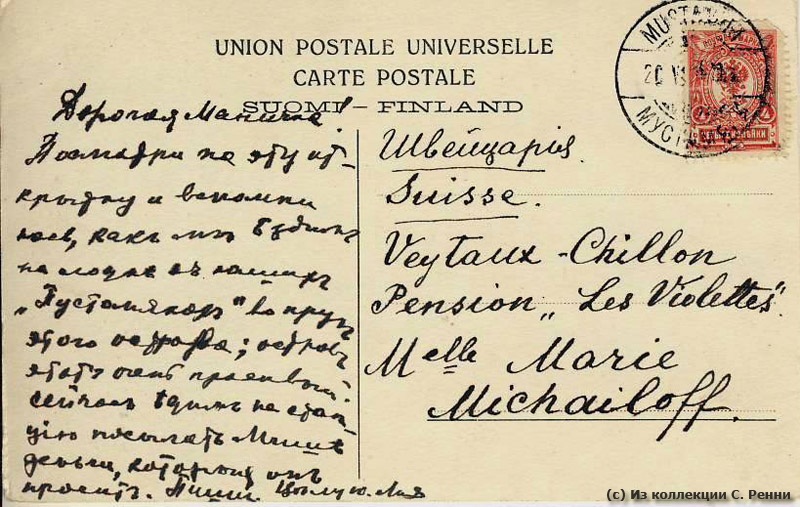 UNION POSTALE UNIVERSELLE
CARTE POSTALE
SUOMI – FINLAND
MUSTAMÄKI
20
Дорогая Маничка!
Посмотри на эту от-
крытку и вспомни
какъ мы ѣздили
на лодке съ нашихъ
во кругъ
этого острова; островъ
этотъ очень красивый.
Сейчасъ ѣдимъ на стан-
цiю посылать Мишѣ
деньги, которыя онъ
проситъ. Пиши. Цѣлую. Лия
Швейцарія
Suisse.
Veytaux - Chillon
Pension „Les Violettes".
Melle Marie
Michailoff.
(c) Из коллекции С. Ренни